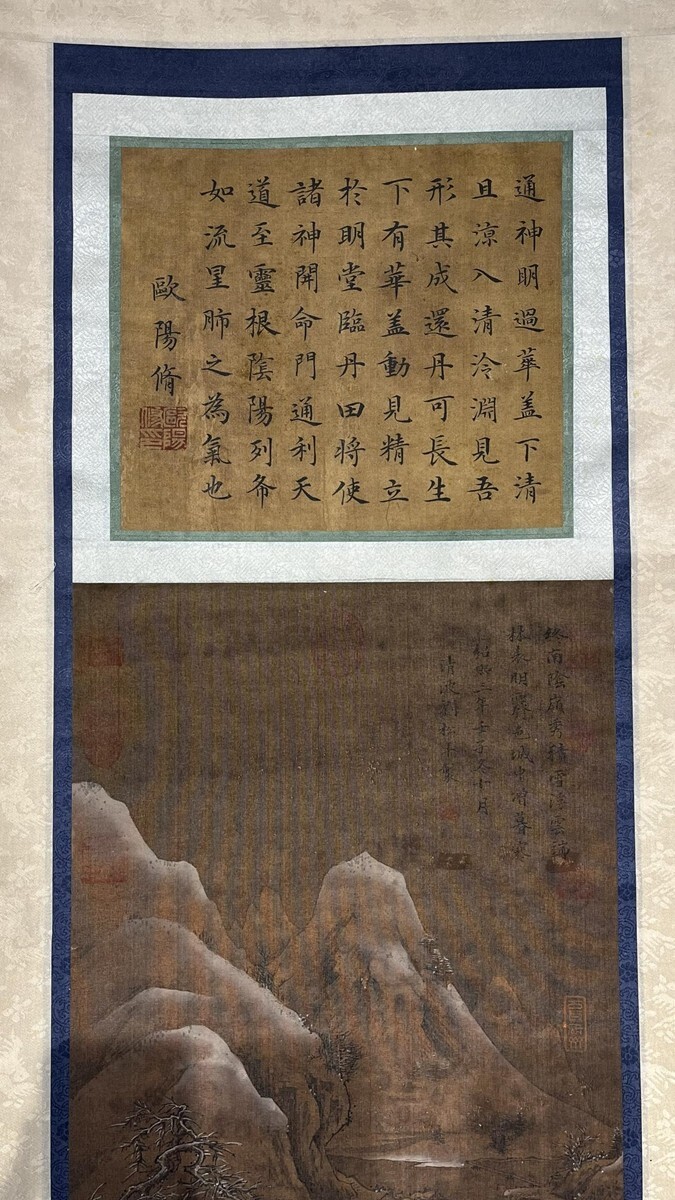 通神明過華盖下清
且涼入清泠淵見吾
形其成還丹可長生
下有華盖動見精立
於明堂臨丹田將使
諸神開命門通利天
道至靈根陰陽列布
如流星肺之為氣也
歐陽脩
終南陰嶺秀積雪浮雲端
林表明霽色城中增暮寒
紹熙二年壬子冬十月
清波劉松年製